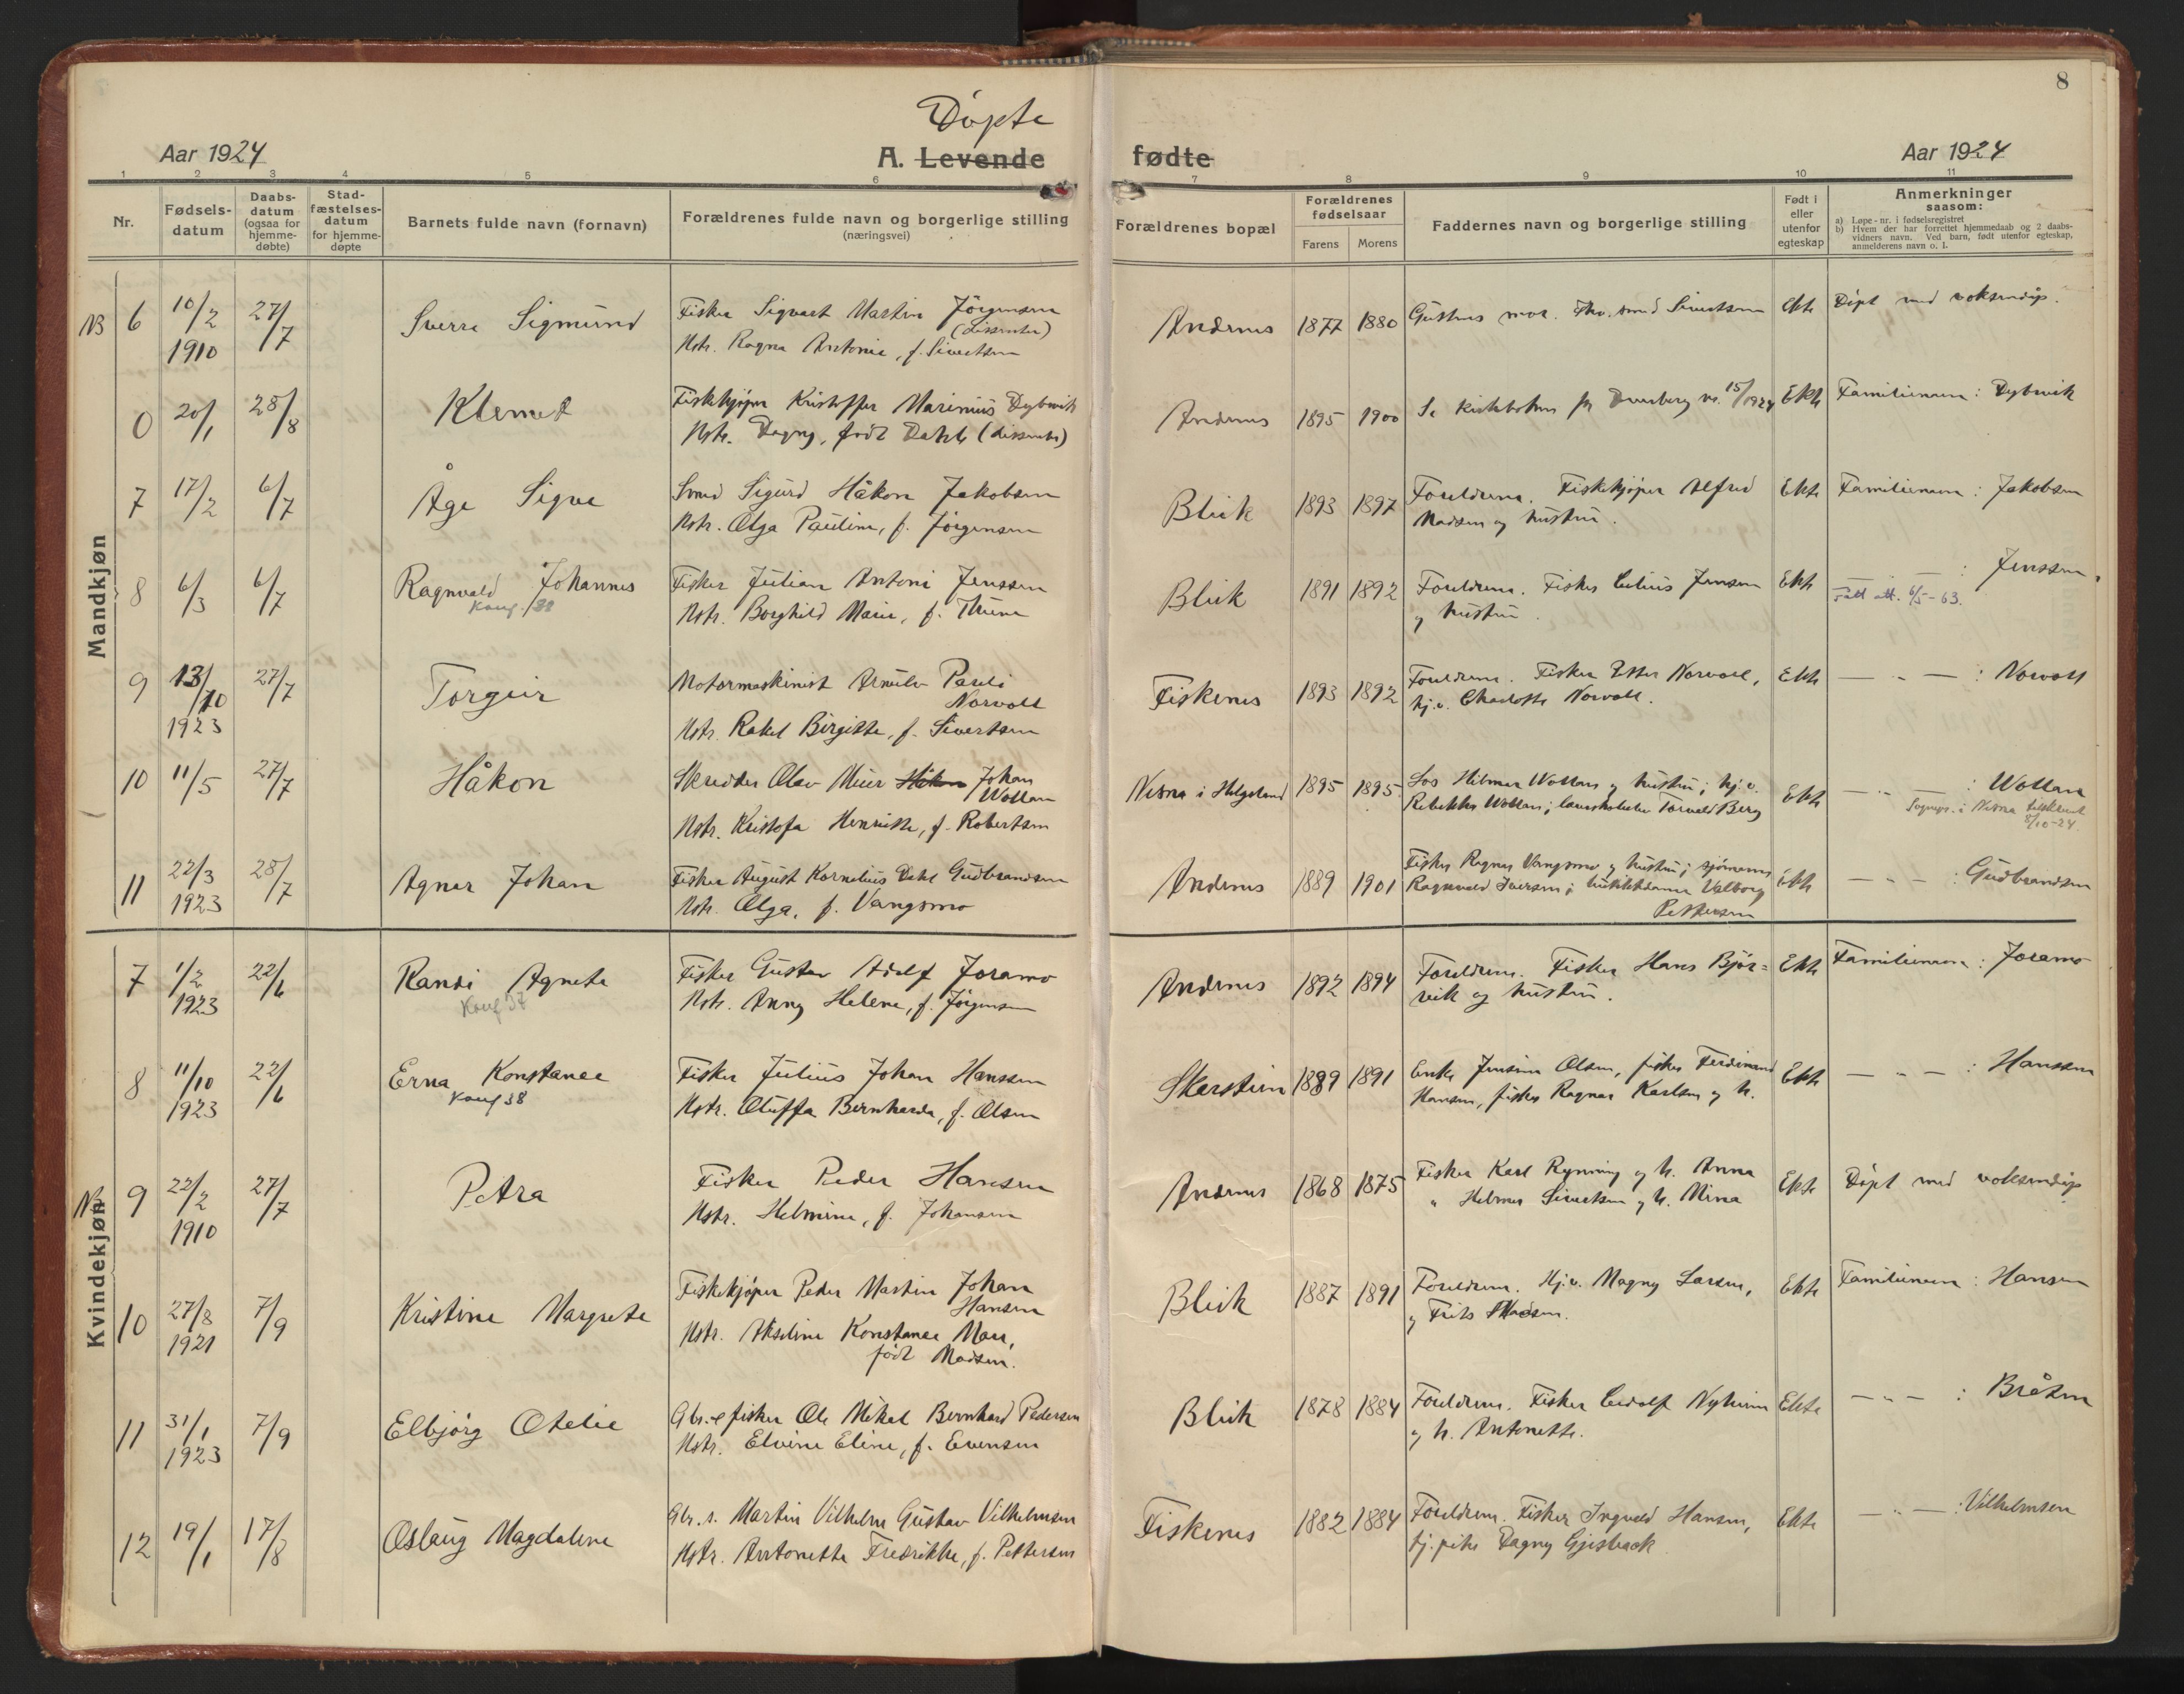 8
Døpte
Aar 1924
A. Levende fødte
Aar 1924
1 2 3 4 5 6 7 8 9 10 11
Nr.
Fødsels-
datum
Daabs-
datum
(ogsaa for
hjemme-
døbte)
Stad-
fæstelses-
datum
for hjemme-
døpte
Barnets fulde navn (fornavn)
Forældrenes fulde navn og borgerlige stilling
(næringsvei)
Forældrenes bopæl
Forældrenes
fødselsaar
Farens Morens
Faddernes navn og borgerlige stilling
Født i
eller
utenfor
egteskap
Anmerkninger
saasom:
a) Løpe-nr. i fødselsregistret
b) Hvem der har forrettet hjemmedaab og 2 daabs-
vidners navn. Ved barn, født utenfor egteskap,
anmelderens navn o. l.
Mandkjøn
NB 6 10/2 1910 27/7 Sverre Sigmund
Fisker Sigvart Martin Jørgensen
(dissenter)
Hstr. Ragna Antonie, f. Sivertsen
Andenes 1877 1880
Ekte
Døpt med voksendåp.
0 20/1 28/8 Klemet
Fiskekjøper Kristoffer Marinius Dybwik
Hstr. Dagny, født Dahl (dissenter)
Andenes 1895 1900
15/1924
Ekte
Familienavn: Dybwik
7 17/2 6/7 Åge Sigve
Smed Sigurd Håkon Jakobsen
Hstr. Olga Pauline, f. Jørgensen
Bleik 1893 1897
Foreldrene. Fiskekjøper Alfred
Madsen og hustru.
Ekte
Familienavn: Jakobsen
8 6/3 6/7 Ragnvald Johannes
Konf. /38
Fisker Julian Antoni Jenssen
Hstr. Borghild Marie, f. Thune
Bleik 1891 1892
Foreldrene. Fisker Edius Jensen
og hustru.
Ekte
— " — : Jenssen
Fått att. 6/5-63.
9 13/10 1923 27/7 Torgeir
Motormaskinist Arnulv Pareli
Norvoll
Hstr. Rakel Birgitte, f. Sivertsen
Fiskenes 1893 1892
Foreldrene. Fisker Peter Norvoll,
hj.v. Charlotte Norvoll.
Ekte
— " — : Norvoll
10 11/5 27/7 Håkon
Skredder Olav Meier Håkon Johan
Wollan
Hstr. Kristofa Henriette, f. Robertsen
Nesna i Helgeland 1895 1895
Los Hilmar Wollan og hustru; hj.v.
Rebekka Wollan; Torvald Berg
Ekte
— " — : Wollan
Sogepr. i Nesna tilskrevet
8/10-24.
11 22/3 1923 28/7 Agnar Johan
Fisker August Kornelius Dahl Gudbrandsen
Hstr. Olga, f. Vangsmo
Andenes 1889 1901
Fisker Ragnar Vangsmo og hustru; sjømann
Ragnvald Iversen; butikkdame Valborg
Pettersen
Ekte
— " — : Gudbrandsen
Kvindekjøn
7 1/2 1923 22/6 Randi Agnete
Konf 37
Fisker Gustav Adolf Joramo
Hstr. Anny Helene, f. Jørgensen
Andenes 1892 1894
Foreldrene. Fisker Hans Bjør=
vik og hustru.
Ekte
Familienavn: Joramo
8 11/10 1923 22/6 Erna Konstanse
Konf 38
Fisker Julius Johan Hanssen
Hstr. Oluffa Bernharda, f. Olsen
Skarstein 1889 1891
Enke Jensine Olsen, fisker Ferdinand
Hansen, fisker Ragnar Karlsen og h.
Ekte
— " — : Hanssen
NB 9 22/2 1910 27/7 Petra
Fisker Peder Hansen
Hstr. Helmine, f. Johansen
Andenes 1868 1875
Fisker Karl Rynning og h. Anna
" Helmer Sivertsen og h. Mina
Ekte
Døpt med voksendåp
10 27/8 1921 7/9 Kristine Margrete
Fiskekjøper Peder Martin Johan
Hansen
Hstr. Akseline Konstanse Marie,
født Madsen.
Bleik 1887 1891
Foreldrene. Hj.v. Magny Larsen,
og Frits Madsen.
Ekte
Familienavn: Hansen
11 31/1 1923 7/9 Elbjørg Otelie
Gbr. & fisker Ole Mikal Bernhard Pedersen
Hstr. Elvine Eline, f. Evensen
Bleik 1878 1884
Foreldrene. Fisker Edolf Nyheim
og h. Antonette.
Ekte
— " — : Bråten
12 19/1 17/8 Oslaug Magdalene
Gbr. s. Martin Vilhelm Gustav Vilhelmsen
Hstr. Antonette Fredrikke, f. Pettersen
Fiskenes 1882 1884
Foreldrene. Fisker Ingvald Hansen,
hj. pike Dagny Gjisbaak
Ekte
— " — : Vilhelmsen